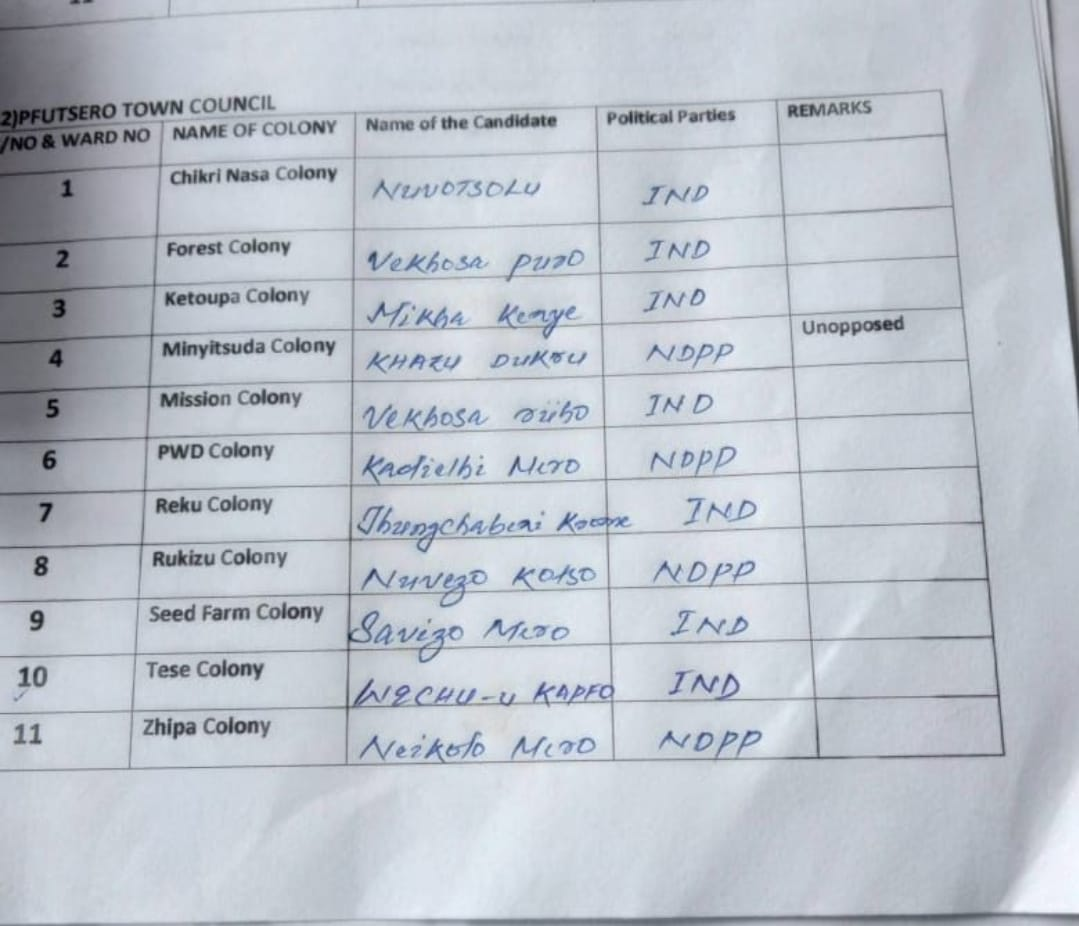 2)PFUTSERO TOWN COUNCIL
/NO & WARD NO NAME OF COLONY Name of the Candidate Political Parties REMARKS
1 Chikri Nasa Colony NUVOTSOLU IND
2 Forest Colony Vekhosa PURO IND
3 Ketoupa Colony Mikha Kenye IND
4 Minyitsuda Colony KHAZU DUKRU NDPP Unopposed
5 Mission Colony Vekhosa IND
6 PWD Colony Kadielhi Mero NDPP
7 Reku Colony IND
8 Rukizu Colony Nuvezo KOTSO NDPP
9 Seed Farm Colony Savizo Mero IND
10 Tese Colony WECHU-U KAPFO IND
11 Zhipa Colony Neikolo Mero NDPP